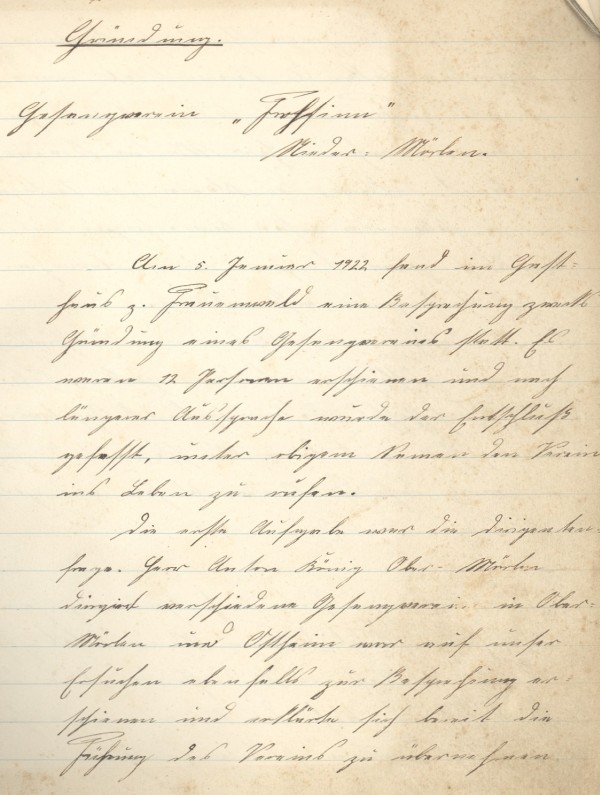 Gründung.
Gesangverein „Frohsinn"
Nieder-Mörlen.
Am 5. Januar 1922 fand im Gast-
haus z. Frauenwald eine Besprechung zwecks
Gründung eines Gesangvereins statt. Es
waren 12 Personen erschienen und nach
längerer Aussprache wurde der Entschluß
gefasst, unter obigem Namen den Verein
ins Leben zu rufen.
Die erste Aufgabe war die Dirigenten-
frage. Herr Anton König Ober-Mörlen
dirigiert verschiedene Gesangverein. in Ober-
Mörlen und Ostheim war auf unser
Ersuchen ebenfalls zur Besprechung er-
schienen und erklärte sich bereit die
Führung des Vereins zu übernehmen